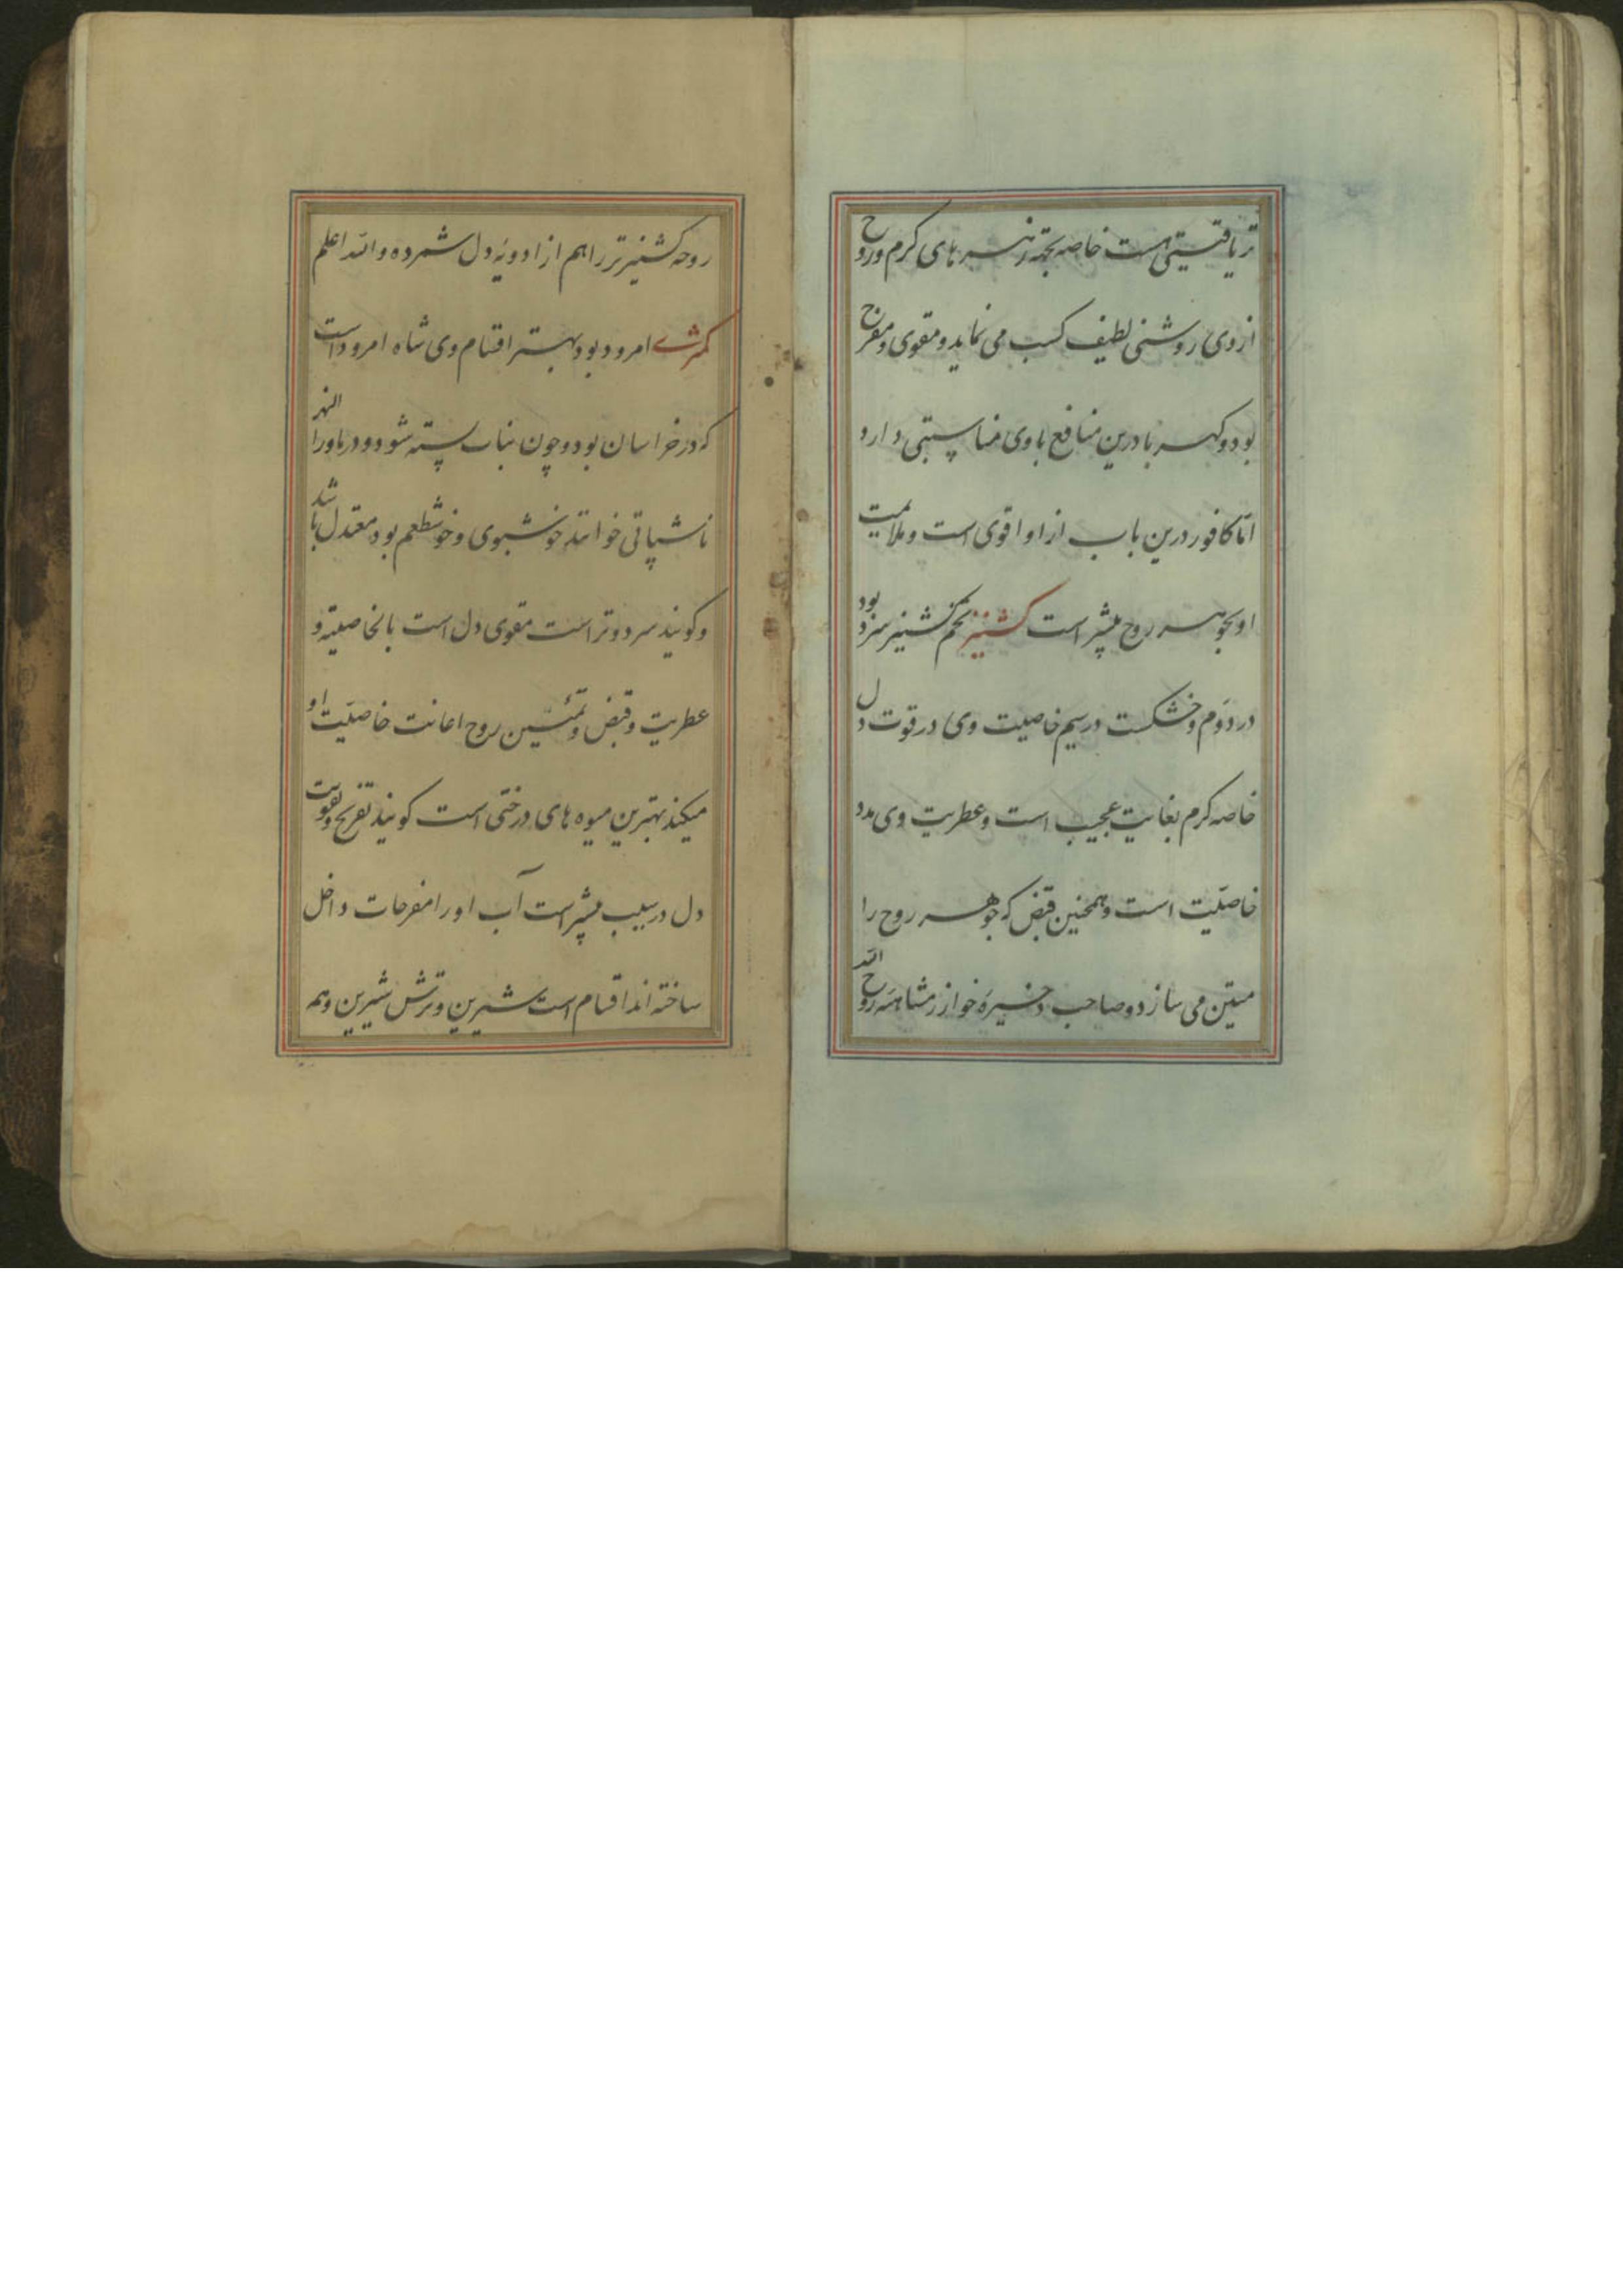 تریاقیتی هست خاصه بجهة زهرهای کرم و روح
از وی روشنی لطیف کسب می نماید و مقوی و مفرح
بود و کهربا درین منافع با وی مناسبتی دارد
اما کافور درین باب از او اقوی است و ملایمت
او بجوهر روح بیشتر است کشنیز تخم کشنیز سرد بود
در دوم و خشکست در سیم خاصیت وی در قوت دل
خاصه کرم بغایت عجیب است و عطریت وی مدد
خاصیت است و همچنین قبض که جوهر روح را
متین می سازد و صاحب ذخیرهٔ خوارزمشاهیه روح الله
روحه کشنیز تر را هم از ادویهٔ دل شمرده والله اعلم
کمثری امرود بود بهتر اقسام وی شاه امرود است
که در خراسان بود و چون بناب بسته شود و در ماورا النهر
ناشپاتی خوانند خوشبوی و خوشطعم بود معتدل باشد
و کویند سرد و تر است مقوی دل است بالخاصیته و
عطریت و قبض و تمتین روح اعانت خاصیت او
میکند بهترین میوه های درختی است کویند تفریح و تقویت
دل در سیب بیشتر است آب او را مفرحات داخل
ساخته اند اقسام است شیرین و ترش شیرین وهم